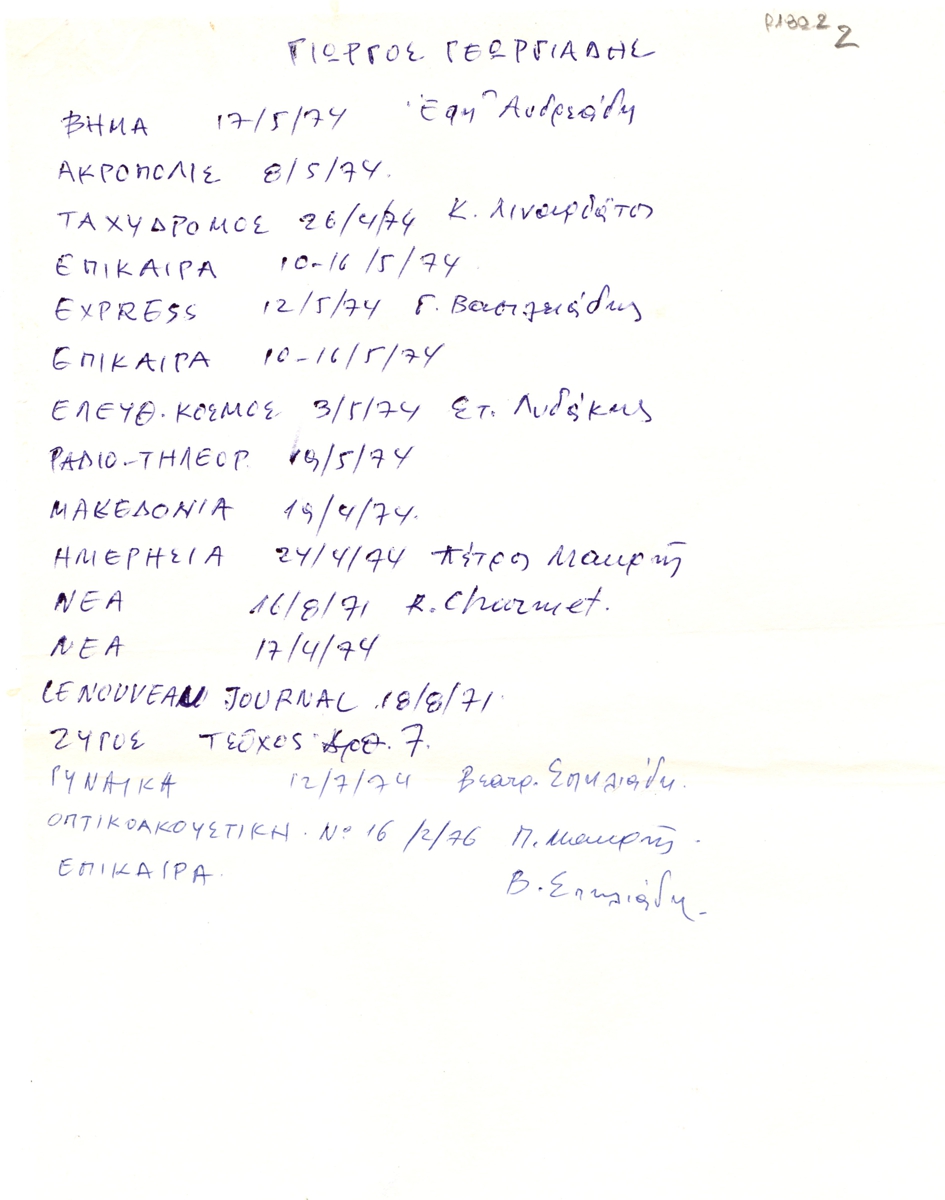 Ρ1302 2
ΓΙΩΡΓΟΣ ΓΕΩΡΓΙΑΔΗΣ
ΒΗΜΑ 17/5/74 Έφη Ανδρεάδη
ΑΚΡΟΠΟΛΙΣ 8/5/74.
ΤΑΧΥΔΡΟΜΟΣ 26/4/74 Κ. Λιναρδάτος
ΕΠΙΚΑΙΡΑ 10-16/5/74
EXPRESS 12/5/74 Γ. Βασιλειάδης
ΕΠΙΚΑΙΡΑ 10-16/5/74
ΕΛΕΥΘ. ΚΟΣΜΟΣ 3/5/74 Στ. Λυδάκης
ΡΑΔΙΟ-ΤΗΛΕΟΡ. 19/5/74
ΜΑΚΕΔΟΝΙΑ 19/4/74.
ΗΜΕΡΗΣΙΑ 24/4/74 Πέτρος Μακρής
ΝΕΑ 16/8/71 R. Charmet.
ΝΕΑ 17/4/74
LE NOUVEAU JOURNAL 18/8/71
ΖΥΓΟΣ ΤΕΥΧΟΣ Αρθ. 7.
ΓΥΝΑΙΚΑ 12/7/74 Βεατρ. Σπηλιάδη.
ΟΠΤΙΚΟΑΚΟΥΣΤΙΚΗ. Νο 16 /2/76 Π. Μακρής.
ΕΠΙΚΑΙΡΑ. Β. Σπηλιάδη.